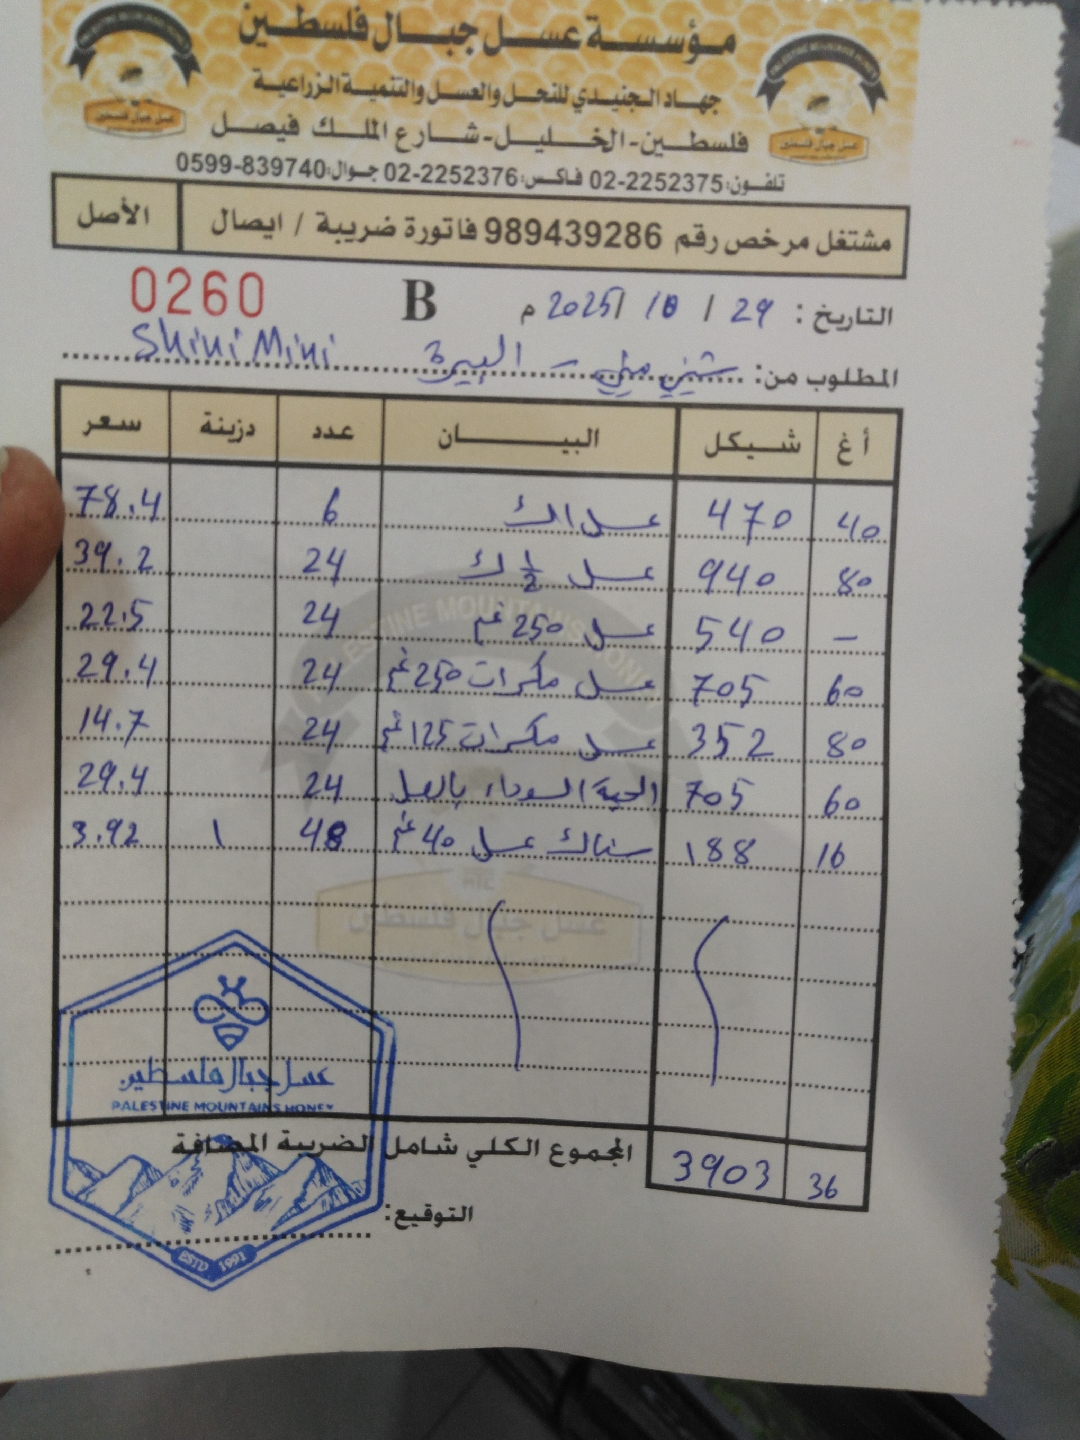 مؤسسة عسل جبال فلسطين
جهاد الجنيدي للنحل والعسل والتنمية الزراعية
فلسطين - الخليل - شارع الملك فيصل
تلفون: 02-2252375 فاكس: 02-2252376 جوال: 0599-839740
مشتغل مرخص رقم 989439286 فاتورة ضريبة / ايصال الأصل
0260 B التاريخ: 29 / 10 / 2025 م
المطلوب من: شيني ميني - البيرة Shini Mini
أغ شيكل البيان عدد دزينة سعر
40 470 عسل 1ك 6 78.4
80 940 عسل 1/2 ك 24 39.2
- 540 عسل 250 غم 24 22.5
60 705 عسل مكسرات 250 غم 24 29.4
80 352 عسل مكسرات 125 غم 24 14.7
60 705 الحبة السوداء بالعسل 24 29.4
16 188 سناك عسل 40 غم 48 1 3.92
المجموع الكلي شامل الضريبة المضافة 3903 36
التوقيع:
عسل جبال فلسطين
PALESTINE MOUNTAINS HONEY
ESTD 1991